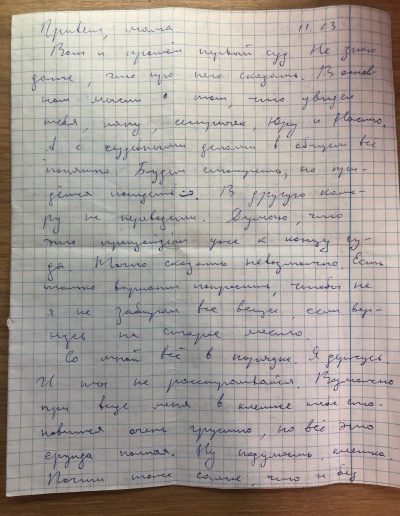 Привет, мама. 11.03
Вот и прошёл первый суд. Не знаю
даже, что про него сказать. В основ-
ном мысли о том, что увидел
тебя, папу, сестричек, Юру и Настю.
А с судебными делами в общем всё
понятно. Будем смотреть, но при-
дётся посидеть :). В другую каме-
ру не переведут. Думаю, что
это произойдёт уже к концу су-
да. Точно сказать невозможно. Есть
только вариант попросить, чтобы не
я не забирал все вещи, если вер-
нусь на старое место.
Со мной всё в порядке. Я держусь.
И ты не расстраивайся. Возможно
при виде меня в клетке тебе ста-
новится очень грустно, но всё это
ерунда полная. Ну подумаешь клетка.
Почти тоже самое, что и без